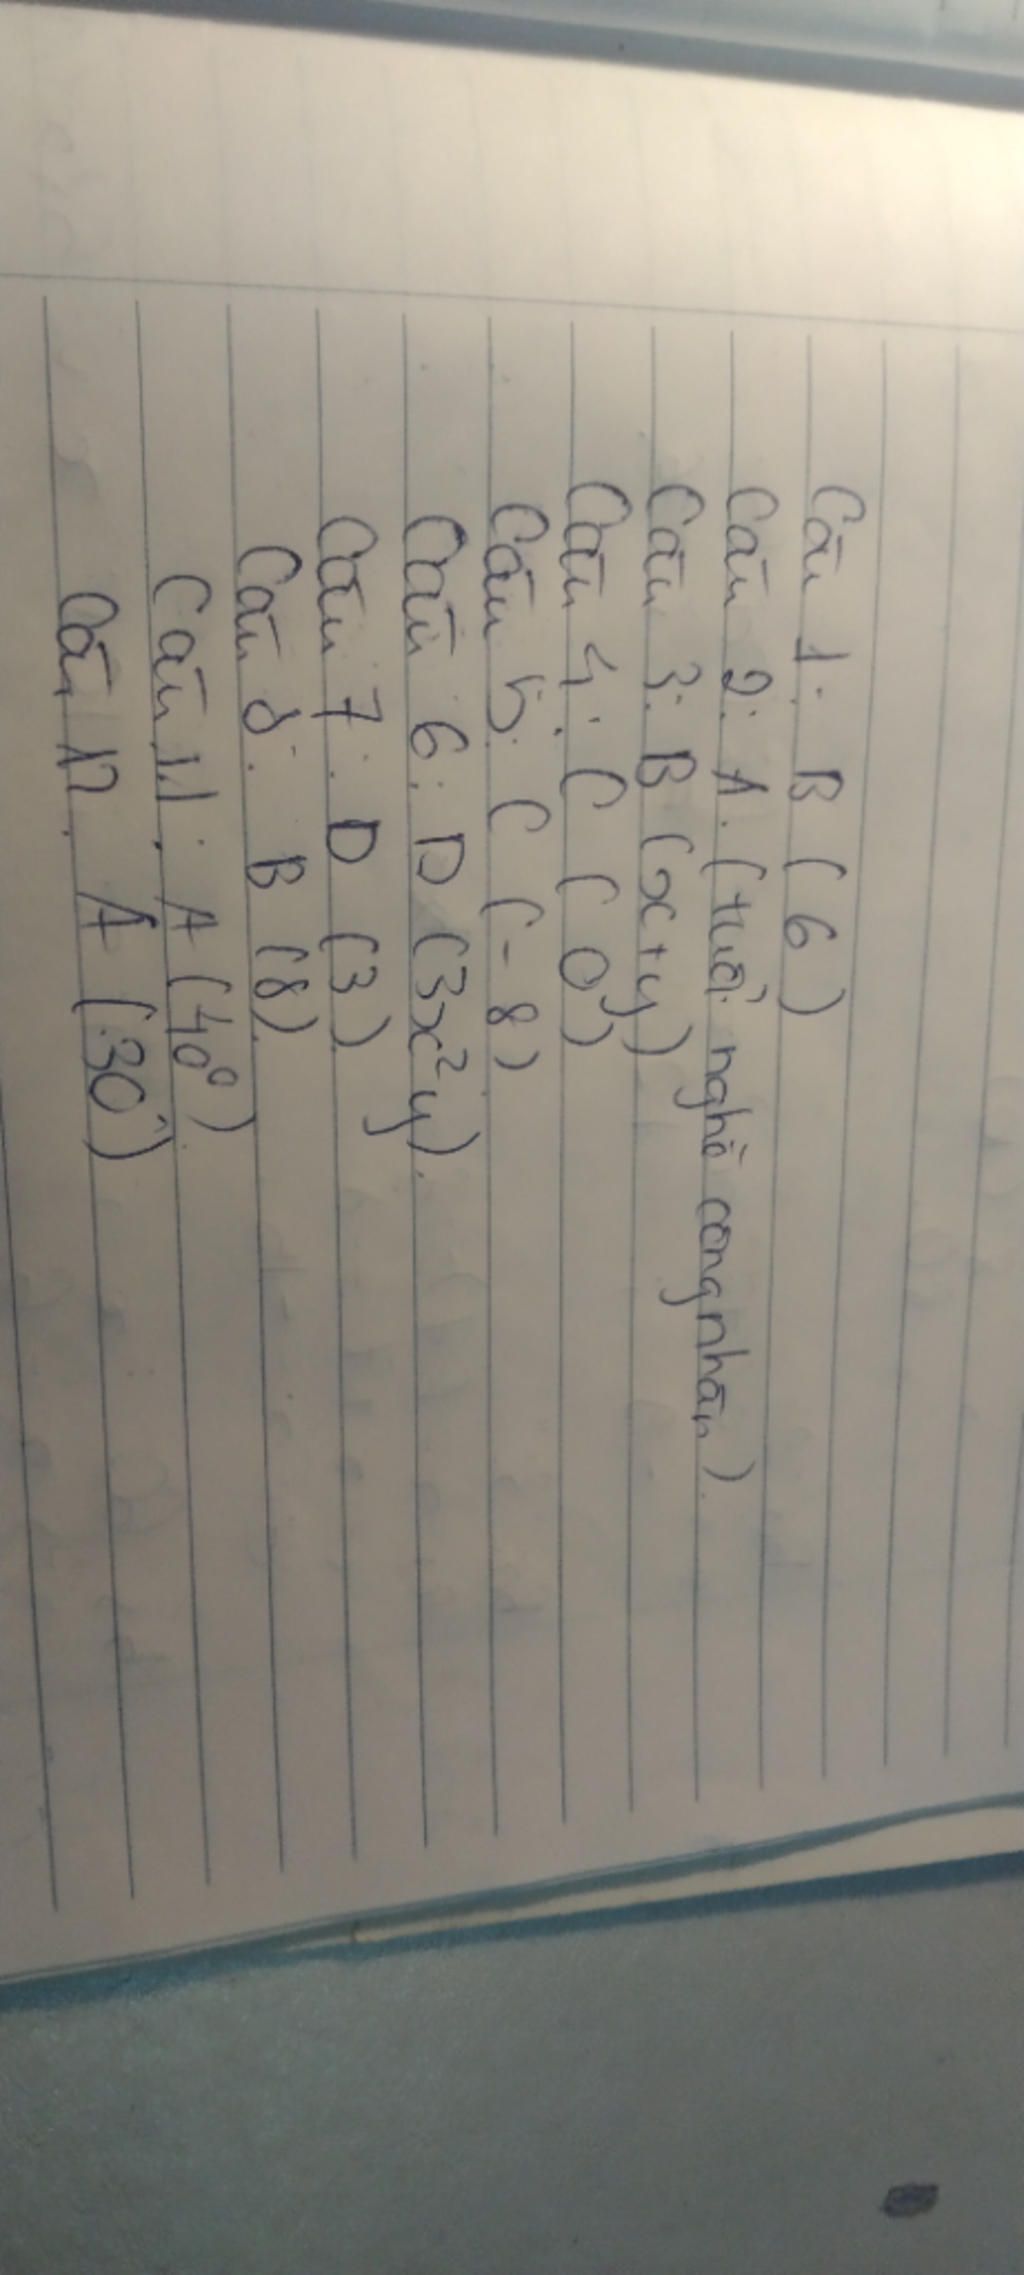 Câu 1: B (6)
Câu 2: A. (tuổi nghề công nhân).
Câu 3: B (x+y)
Câu 4: C (0)
Câu 5: C (-8)
Câu 6: D (3x²y).
Câu 7: D (3)
Câu 8: B (8)
Câu 11: A (40°)
Câu 12. A (30°)